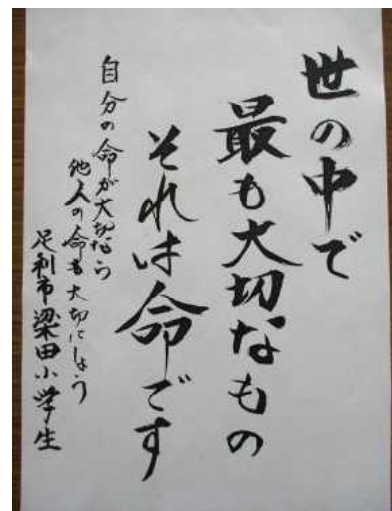 世の中で
最も大切なもの
それは命です
自分の命が大切なら
他人の命も大切にしよう
足利市梁田小学生